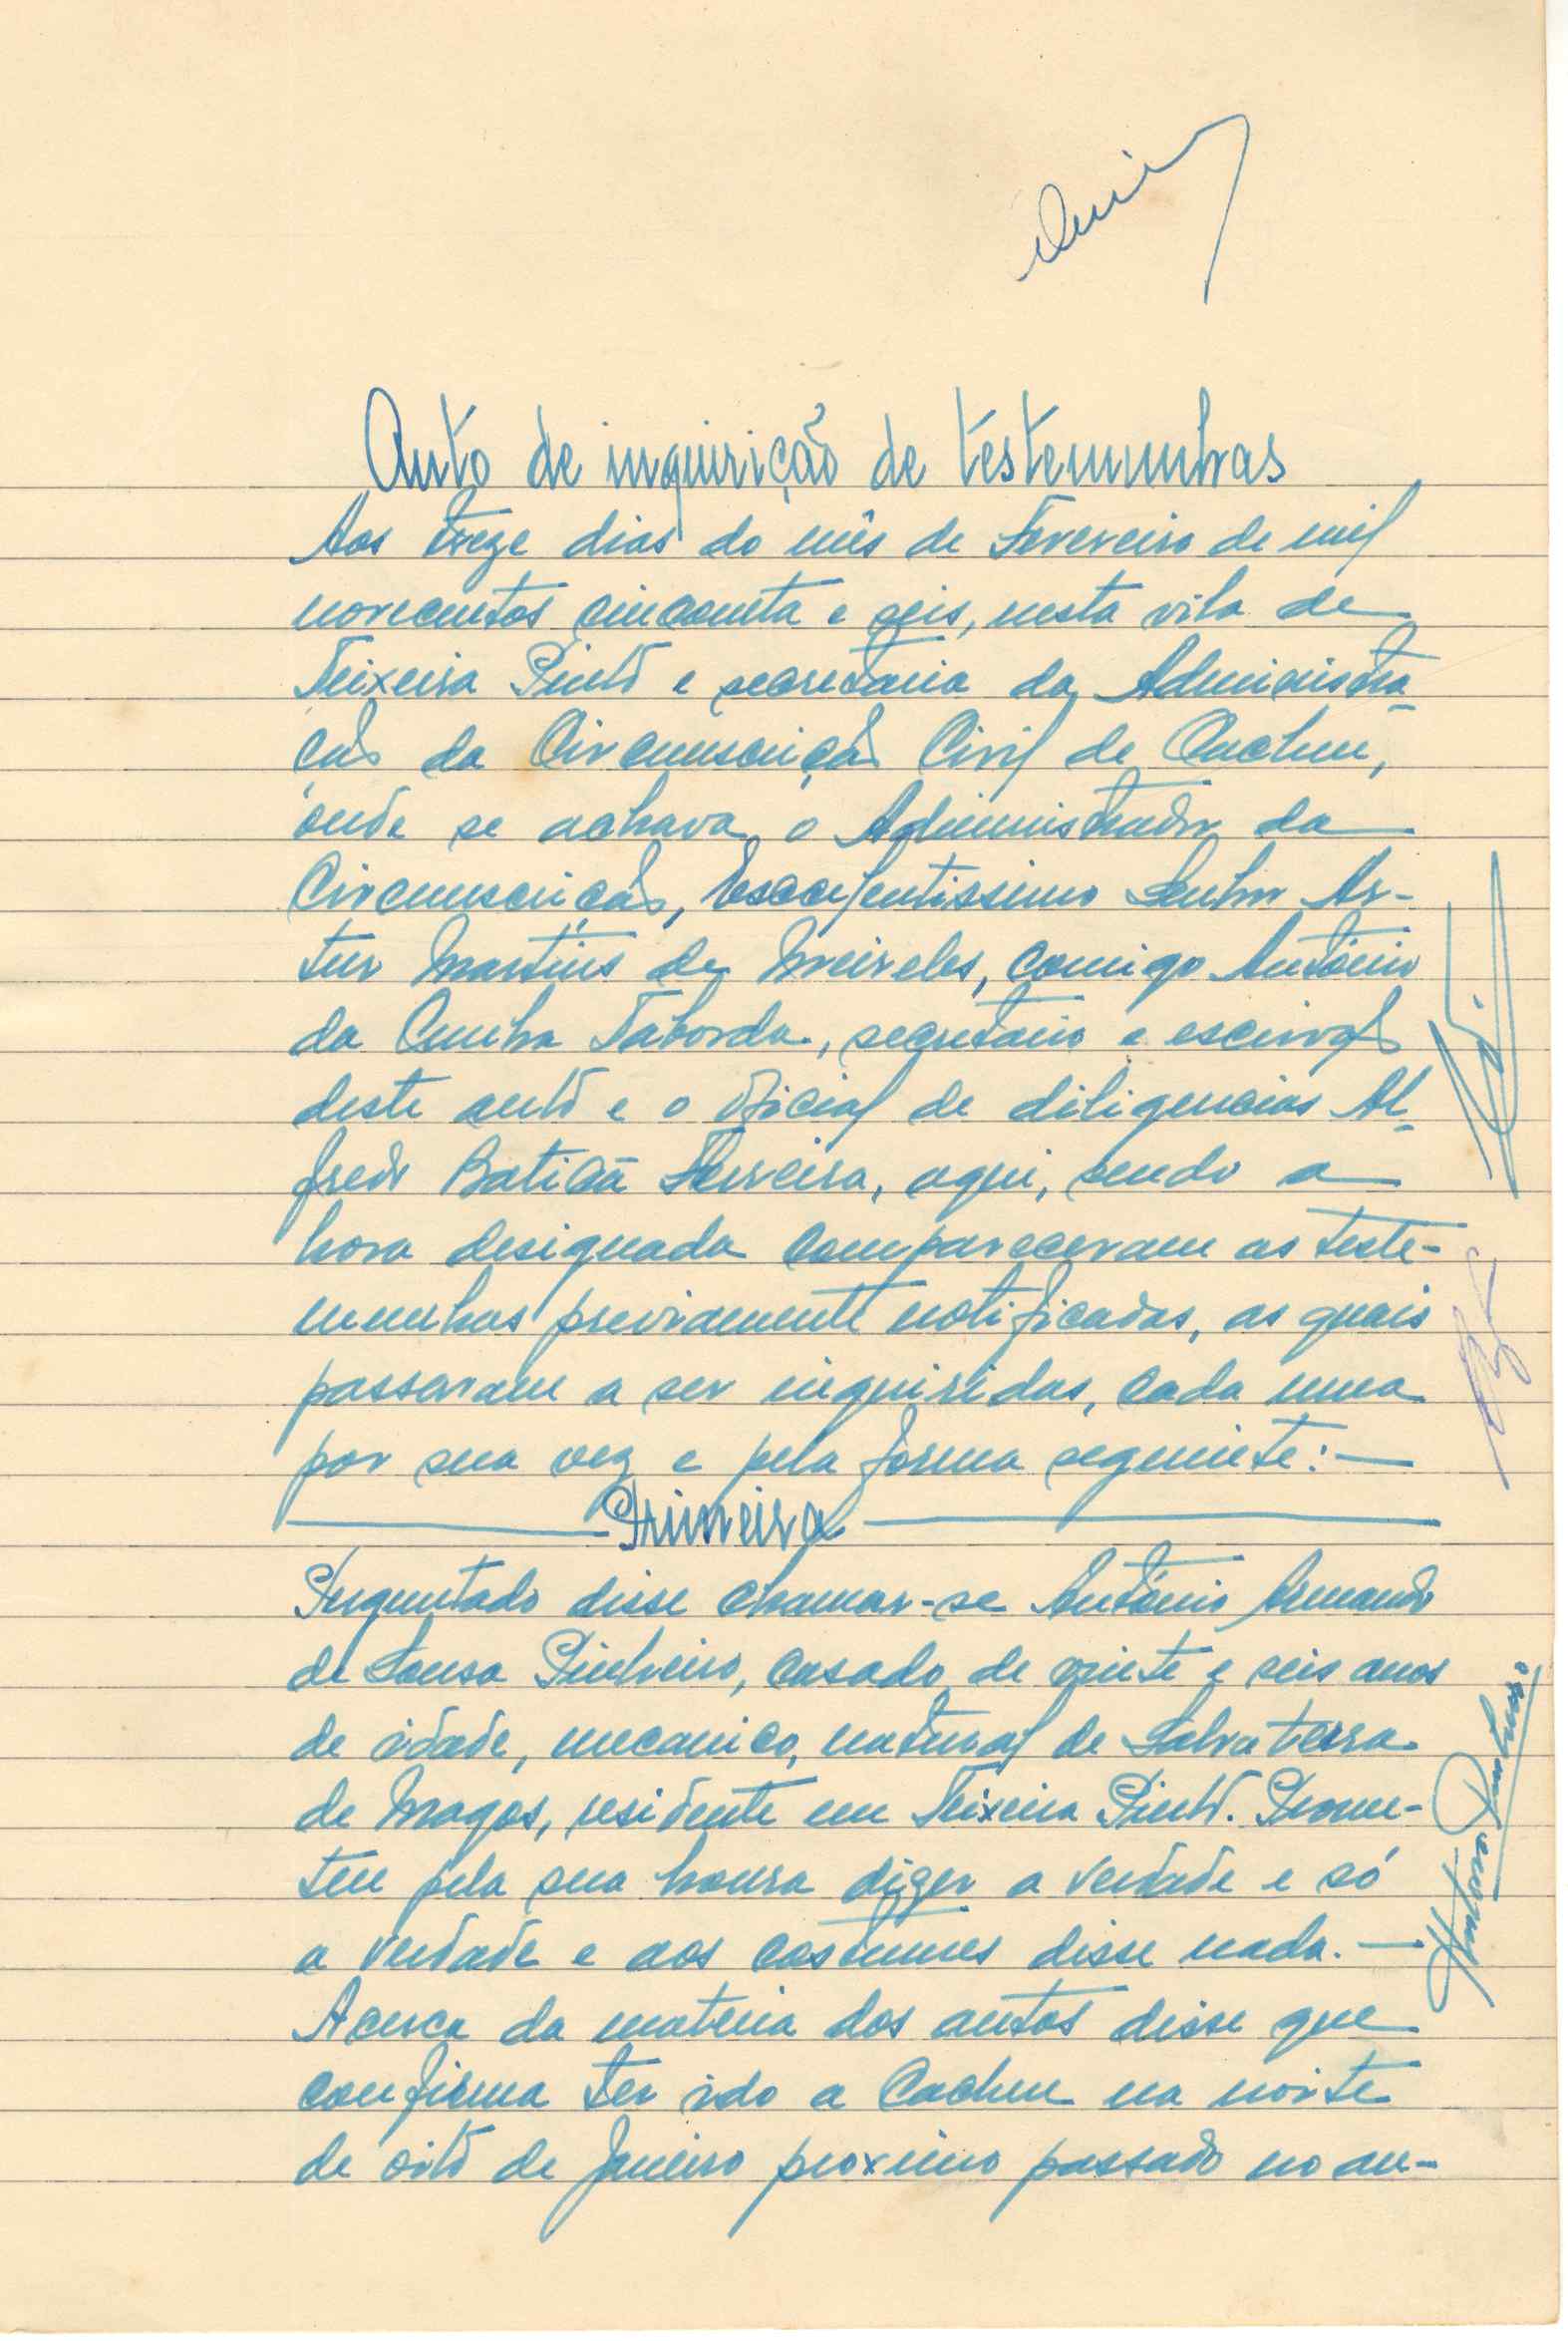 Auto de inquirição de testemunhas
Aos treze dias do mês de Fevereiro de mil
novecentos cincoenta e seis, nesta vila de
Teixeira Pinto e secretaria da Administra-
ção da Circunscrição Civil de Cacheu,
onde se achava o Administrador da
Circunscrição, Excelentissimo Senhor Ar-
tur Martins de Meireles, comigo António
da Cunha Taborda, secretário e escrivão
deste auto e o oficial de diligencias Al-
fredo Baticã Ferreira, aqui, sendo a
hora designada compareceram as teste-
munhas previamente notificadas, as quais
passaram a ser inquiridas, cada uma
por sua vez e pela forma seguinte: —
Primeira
Perguntado disse chamar-se António Armando
de Sousa Pinheiro, casado, de vinte e seis anos
de idade, mecanico, natural de Salvaterra
de Magos, residente em Teixeira Pinto. Prome-
teu pela sua honra dizer a verdade e só
a verdade e aos costumes disse nada. —
Acerca da materia dos autos disse que
confirma ter ido a Cacheu na noite
de oito de Janeiro proximo passado no au-